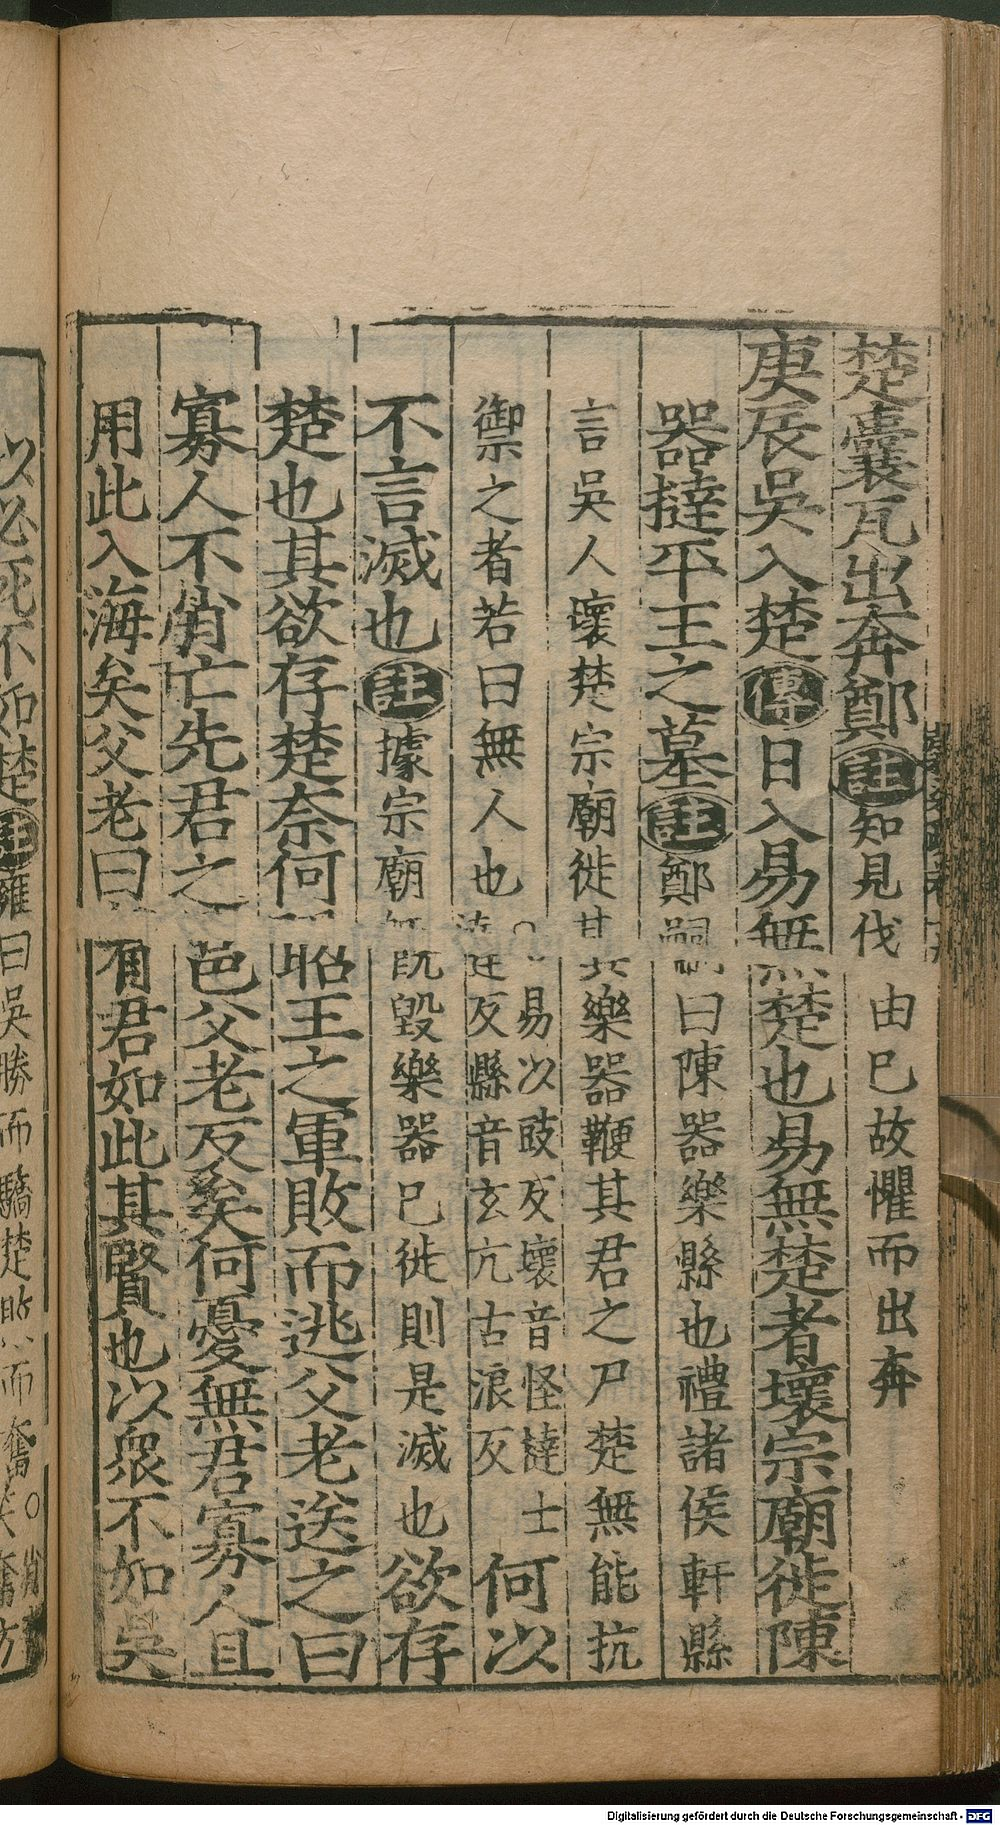 楚囊瓦出奔鄭註知見伐由巳故懼而出奔
庚辰吳入楚傳日入易無楚也易無楚者壞宗廟徙陳
器撻平王之墓註鄭嗣曰陳器樂縣也禮諸侯軒縣
言吳人壞楚宗廟徙其樂器鞭其君之尸楚無能抗
禦之者若曰無人也○易以豉反壞音怪撻士
達反縣音玄亢古浪反何以
不言滅也註據宗廟既毀樂器巳徙則是滅也欲存
楚也其欲存楚奈何昭王之軍敗而逃父老送之曰
寡人不肖亡先君之邑父老反矣何憂無君寡人且
用此入海矣父老曰有君如此其賢也以衆不如吳
以必死不如楚註雍曰吳勝而驕楚敗而奮○肖
奮方
Digitalisierung gefördert durch die Deutsche Forschungsgemeinschaft - DFG